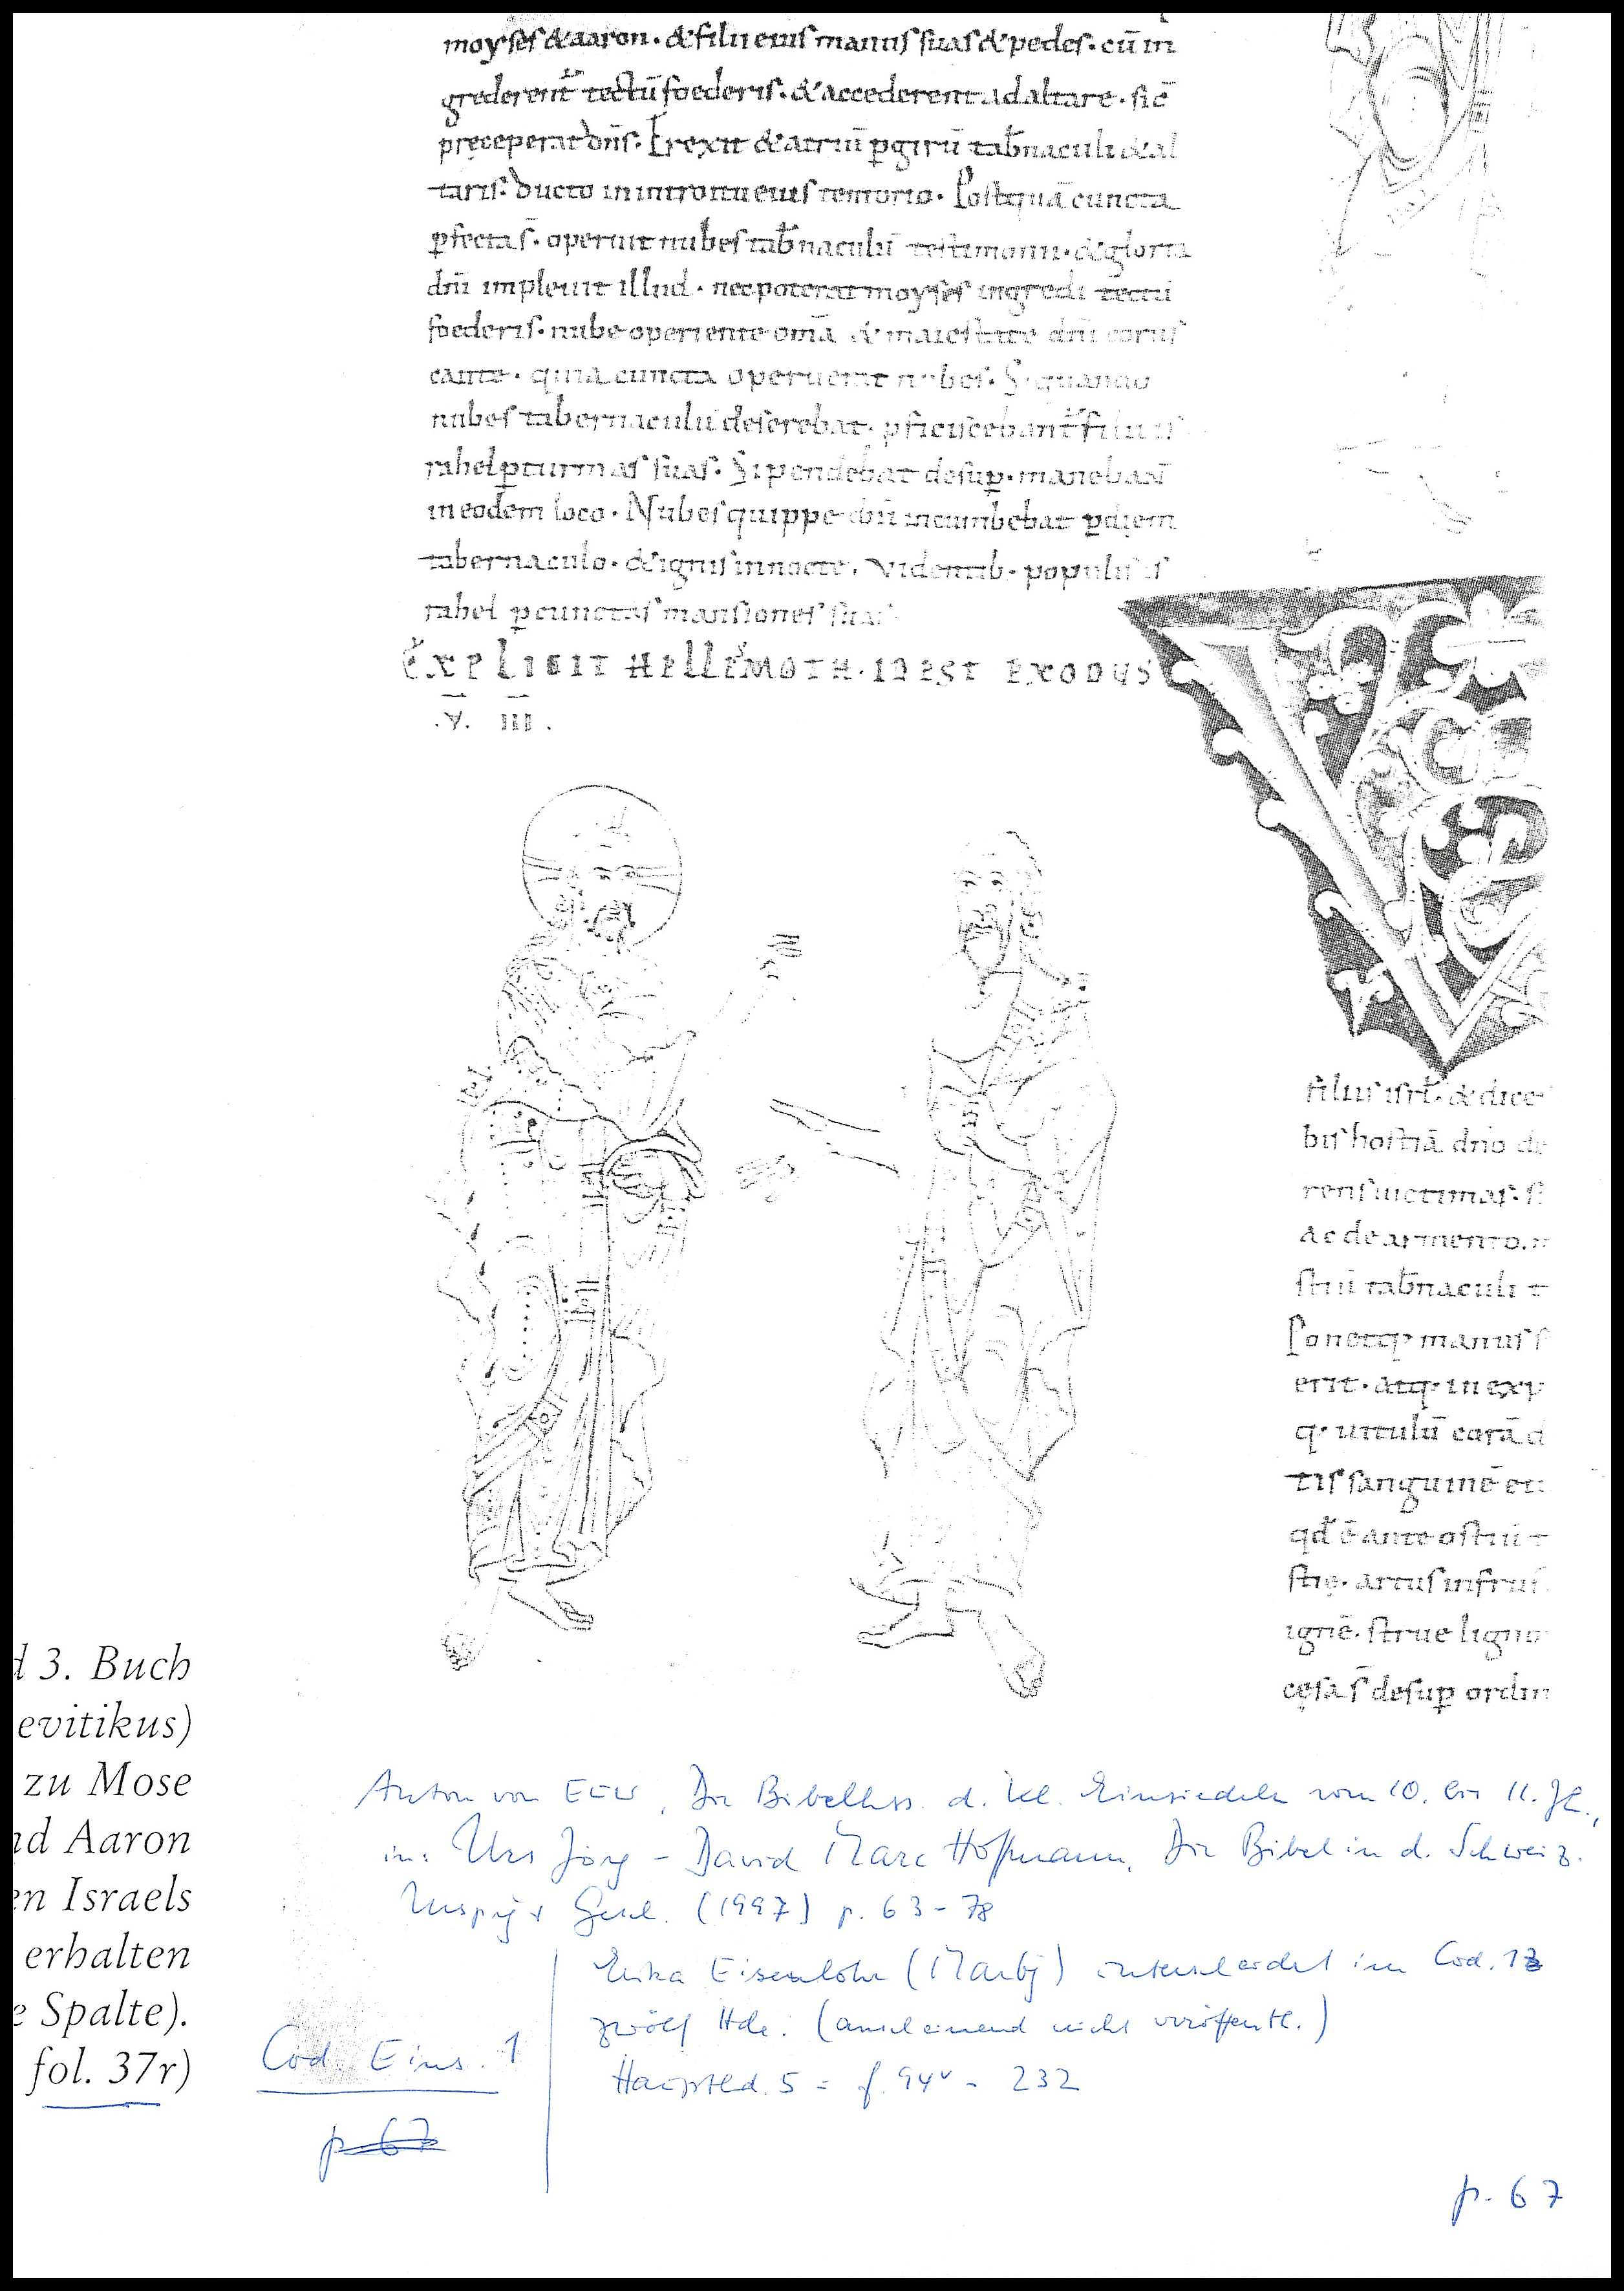 moyses & aaron · & filii eius manus suas & pedes · cū in
grederent᷑ tectū foederis · & accederent ad altare · sic̄
pręceperat dn̄s · Erexit & atriū p̱ girū tab̄naculi & al
taris · ducto in introitu eius tentorio · Postquā cuncta
p̱fecta s̄ · operuit nubes tab̄naculū testimonii · & gloria
dn̄i impleuit illud · nec poterat moyses ingredi tectū
foederis · nube operiente om̄a & maiestate dn̄i corus
cante · quia cuncta operuerat nubes · Siquando
nubes tabernaculū deserebat · p̱ficiscebant᷑ filii is
rahel p̱ turmas suas · Si pendebat desup̱ · manebant
in eodem loco · Nubes quippe dn̄i incumbebat p̱ diem
tabernaculo · & ignis in nocte · videntib · populis is
rahel p̱ cunctas mansiones suas
EXPLICIT HELLESMOTH · IDEST EXODUS
.V̄. ĪĪĪ .
filiis isrl̄ · & dice
bis hostiā dn̄o
rens uictimas · 
ac de armento ·
stiū tab̄naculi t
Ponetq; manus s
erit · atq; in exp
q; uitulū corā d
tis sanguinē
qd̄ ē ante ostiū t
stię · artus in frus
ignē · strue ligno
cęsa s̄ desup̱ ordin
d 3. Buch
evitikus)
zu Mose
nd Aaron
en Israels
erhalten
e Spalte).
fol. 37r)
Anton von Euw, Die Bibelhss. d. Kl. Einsiedeln vom 10. bis 11. Jh.,
in: Urs Jörg – David Marc Hoffmann, Die Bibel in d. Schweiz.
Urspr. + Gesch. (1997) p. 63-78
Erika Eisenlohr (Marbg) unterscheidet im Cod. 1
zwölf Hde. (anscheinend nicht veröffentl.)
Haupthd. 5 = f. 94v - 232
Cod. Eins. 1
p 67
p. 67